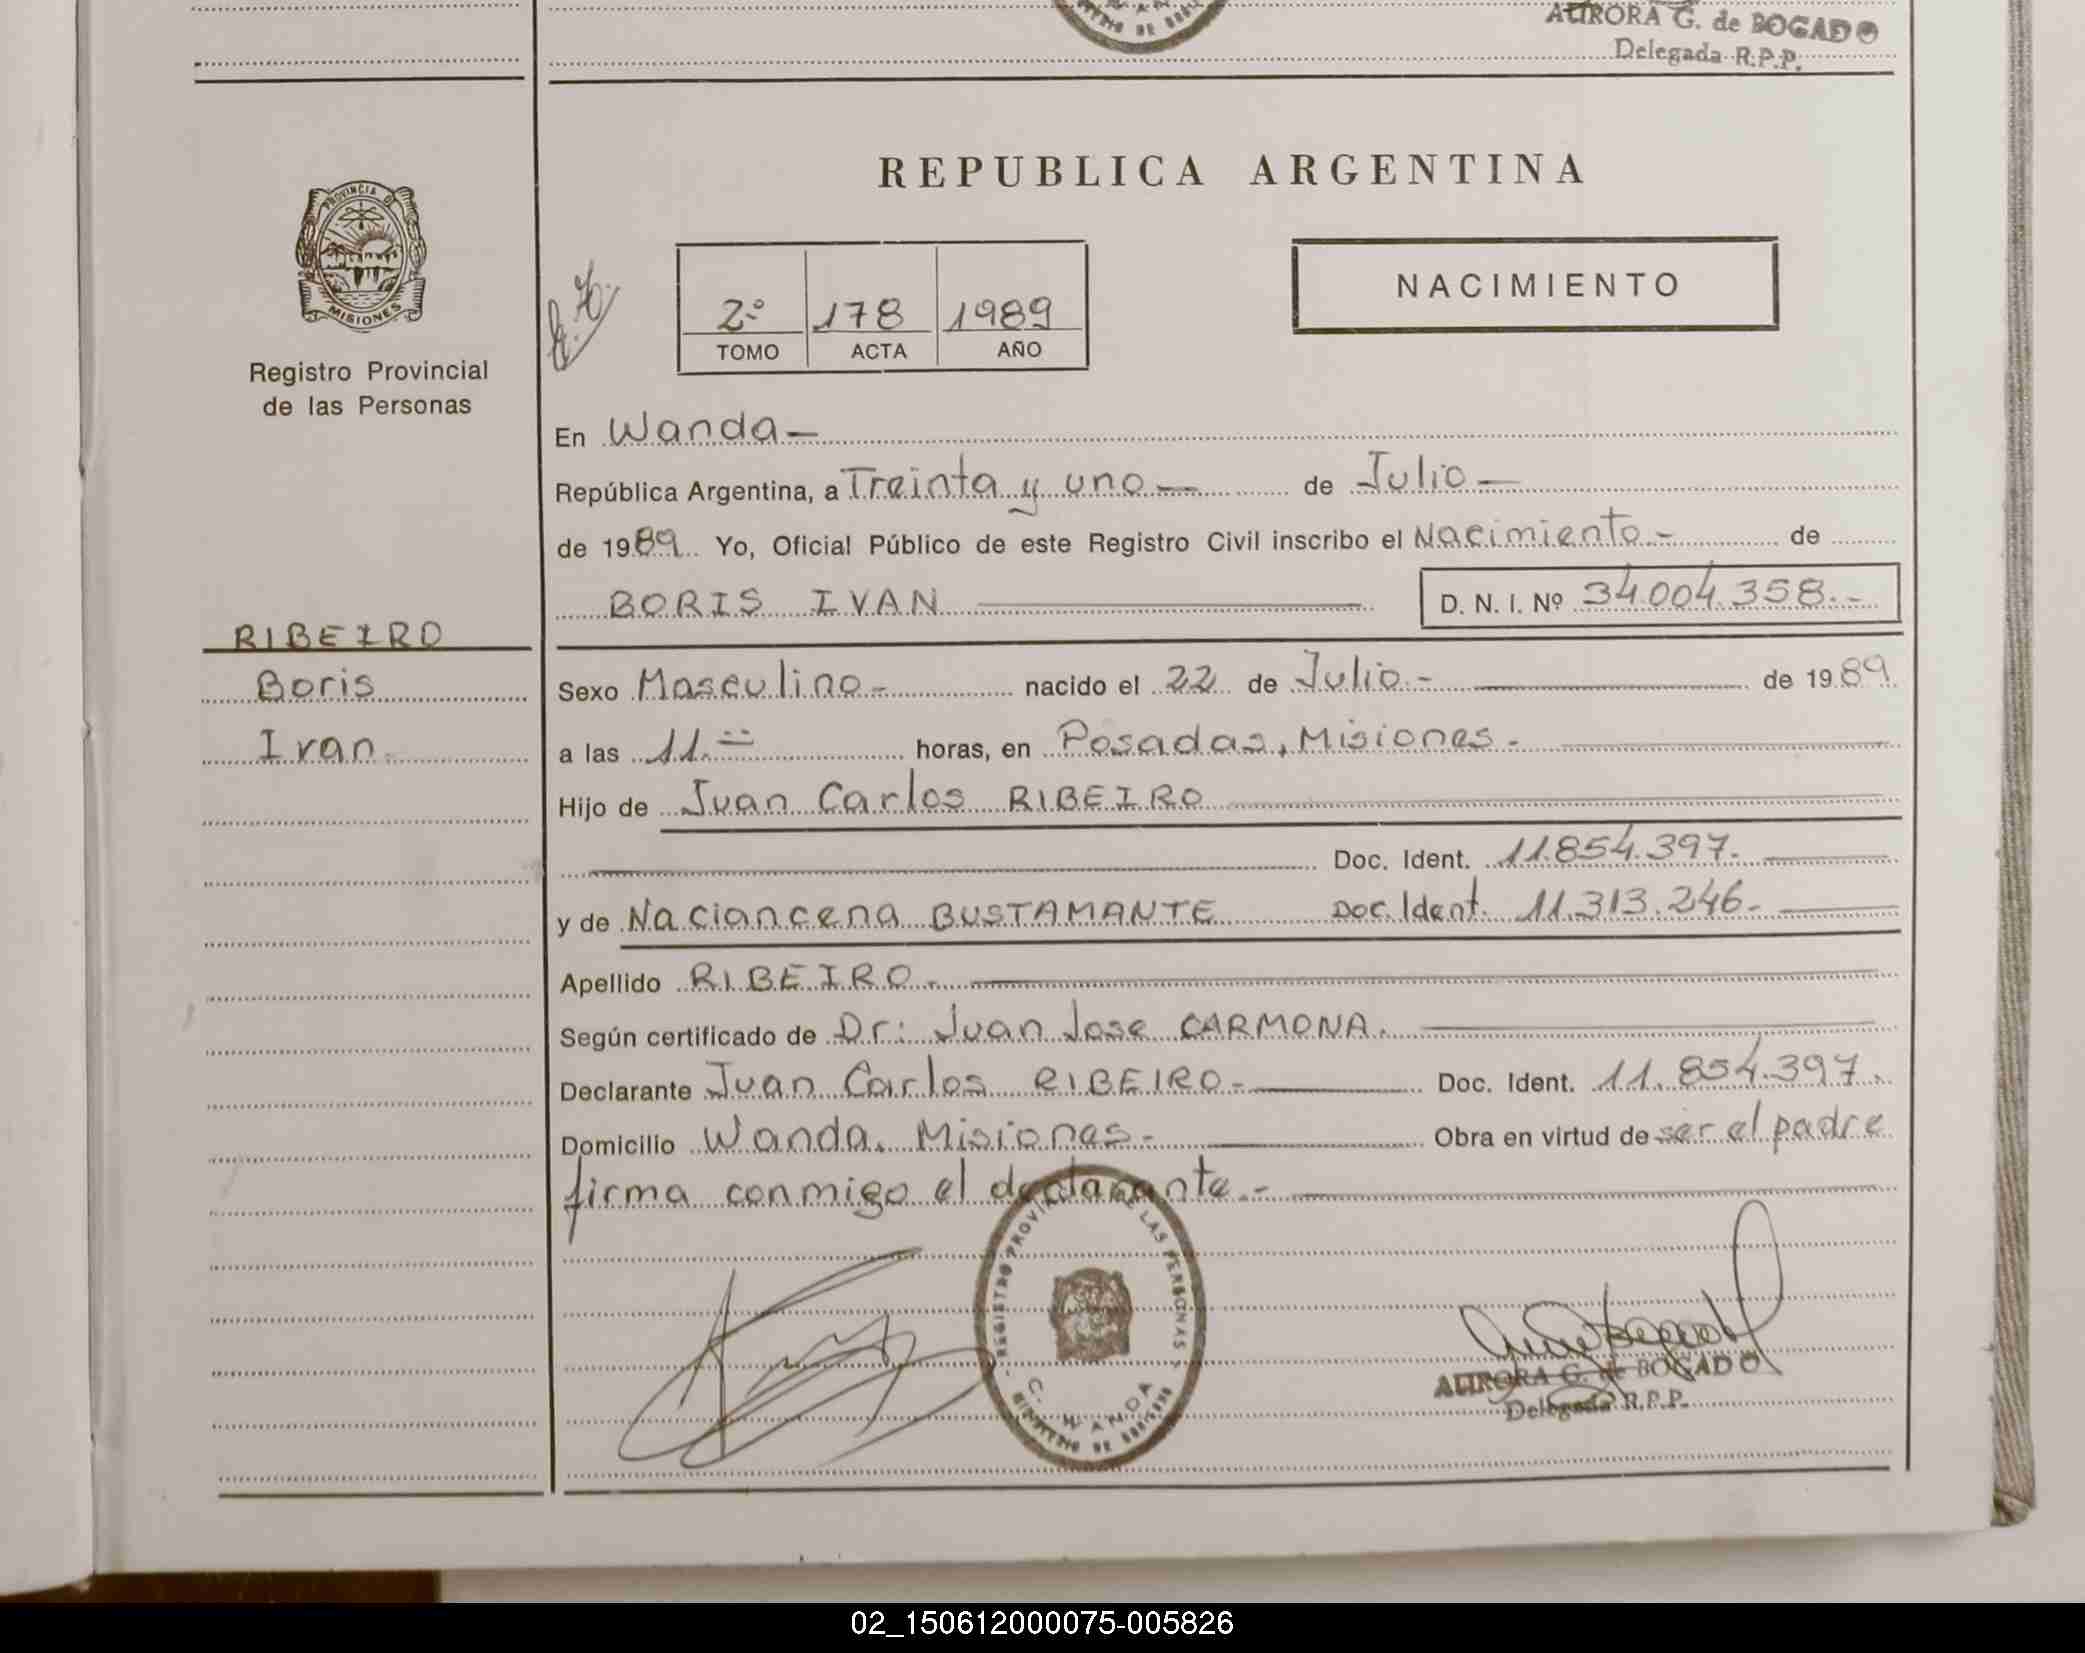 MINISTERIO DE GOBIERNO
AURORA G. de BOGADO
Delegada R.P.P.
PROVINCIA DE
MISIONES
Registro Provincial
de las Personas
REPUBLICA ARGENTINA
2º 178 1989
TOMO ACTA AÑO
NACIMIENTO
En Wanda—
República Argentina, a Treinta y uno— de Julio—
de 1989 Yo, Oficial Público de este Registro Civil inscribo el Nacimiento.- de
BORIS IVAN
D. N. I. Nº 34.004.358.-
RIBEIRO
Boris
Ivan.
Sexo Masculino.- nacido el 22 de Julio.- de 1989.
a las 11.= horas, en Posadas, Misiones.-
Hijo de Juan Carlos RIBEIRO
Doc. Ident. 11.854.397.
y de Naciancena BUSTAMANTE Doc. Ident. 11.313.246.-
Apellido RIBEIRO.-
Según certificado de Dr: Juan Jose CARMONA.
Declarante Juan Carlos RIBEIRO.- Doc. Ident. 11.854.397.
Domicilio Wanda, Misiones.- Obra en virtud de ser el padre
firma conmigo el declarante.-
REGISTRO PROVINCIAL DE LAS PERSONAS
C. WANDA
MINISTERIO DE GOBIERNO
AURORA G. de BOGADO
Delegada R.P.P.
02_150612000075-005826